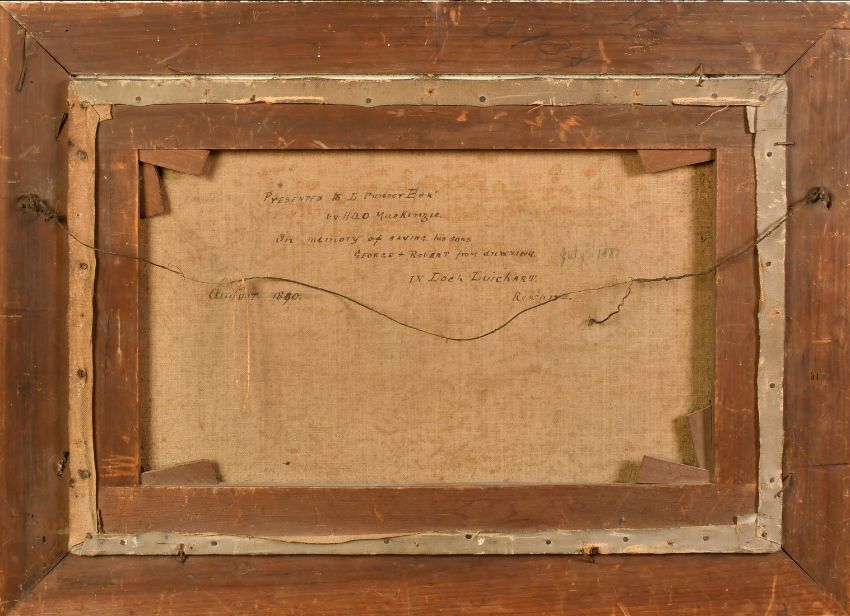 PRESENTED to L Esqr
by H.D.O. MacKenzie.
In memory of SAVING his sons
GEORGE + ROBERT from drowning. July 188
IN Loch Luichart.
August 1890.